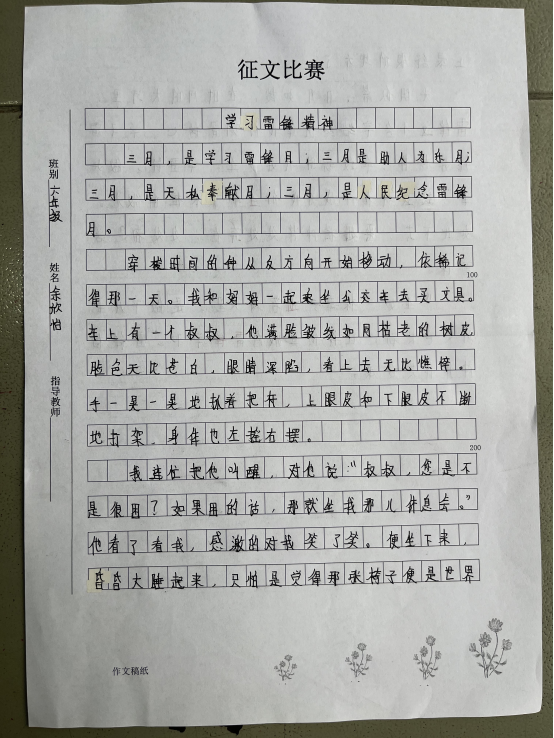 征文比赛
学习雷锋精神
三月，是学习雷锋月；三月是助人为乐月；
三月，是无私奉献月；三月，是人民纪念雷锋
月。
穿梭时间的钟从反方向开始移动，依稀记
得那一天。我和妈妈一起来坐公交车去买文具。
车上有一个叔叔，他满脸皱纹如同枯老的树皮
脸色无比苍白，眼睛深陷，看上去无比憔悴。
手一晃一晃地抓着把杆，上眼皮和下眼皮不断
地打架。身体也左摇右摆。
我连忙把他叫醒，对他说：“叔叔，您是不
是很困？如果困的话，那就坐我那儿休息会。”
他看了看我，感激的对我笑了笑。便坐下来，
昏昏大睡起来，只怕是觉得那张椅子便是世界
100
200
班别 六年级
姓名
指导教师
作文稿纸